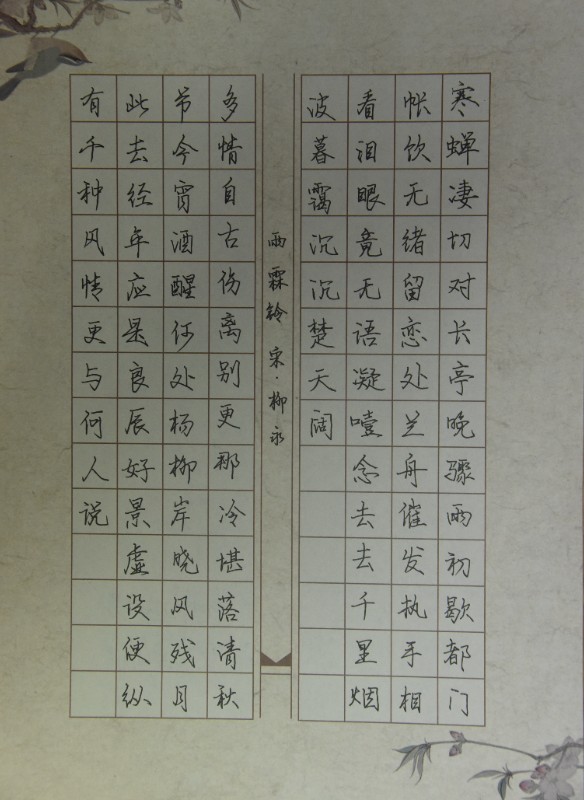 寒蝉凄切对长亭晚骤雨初歇都门
帐饮无绪留恋处兰舟催发执手相
看泪眼竟无语凝噎念去去千里烟
波暮霭沉沉楚天阔
雨霖铃 宋·柳永
多情自古伤离别更那冷堪落清秋
节今宵酒醒何处杨柳岸晓风残月
此去经年应是良辰好景虚设便纵
有千种风情更与何人说